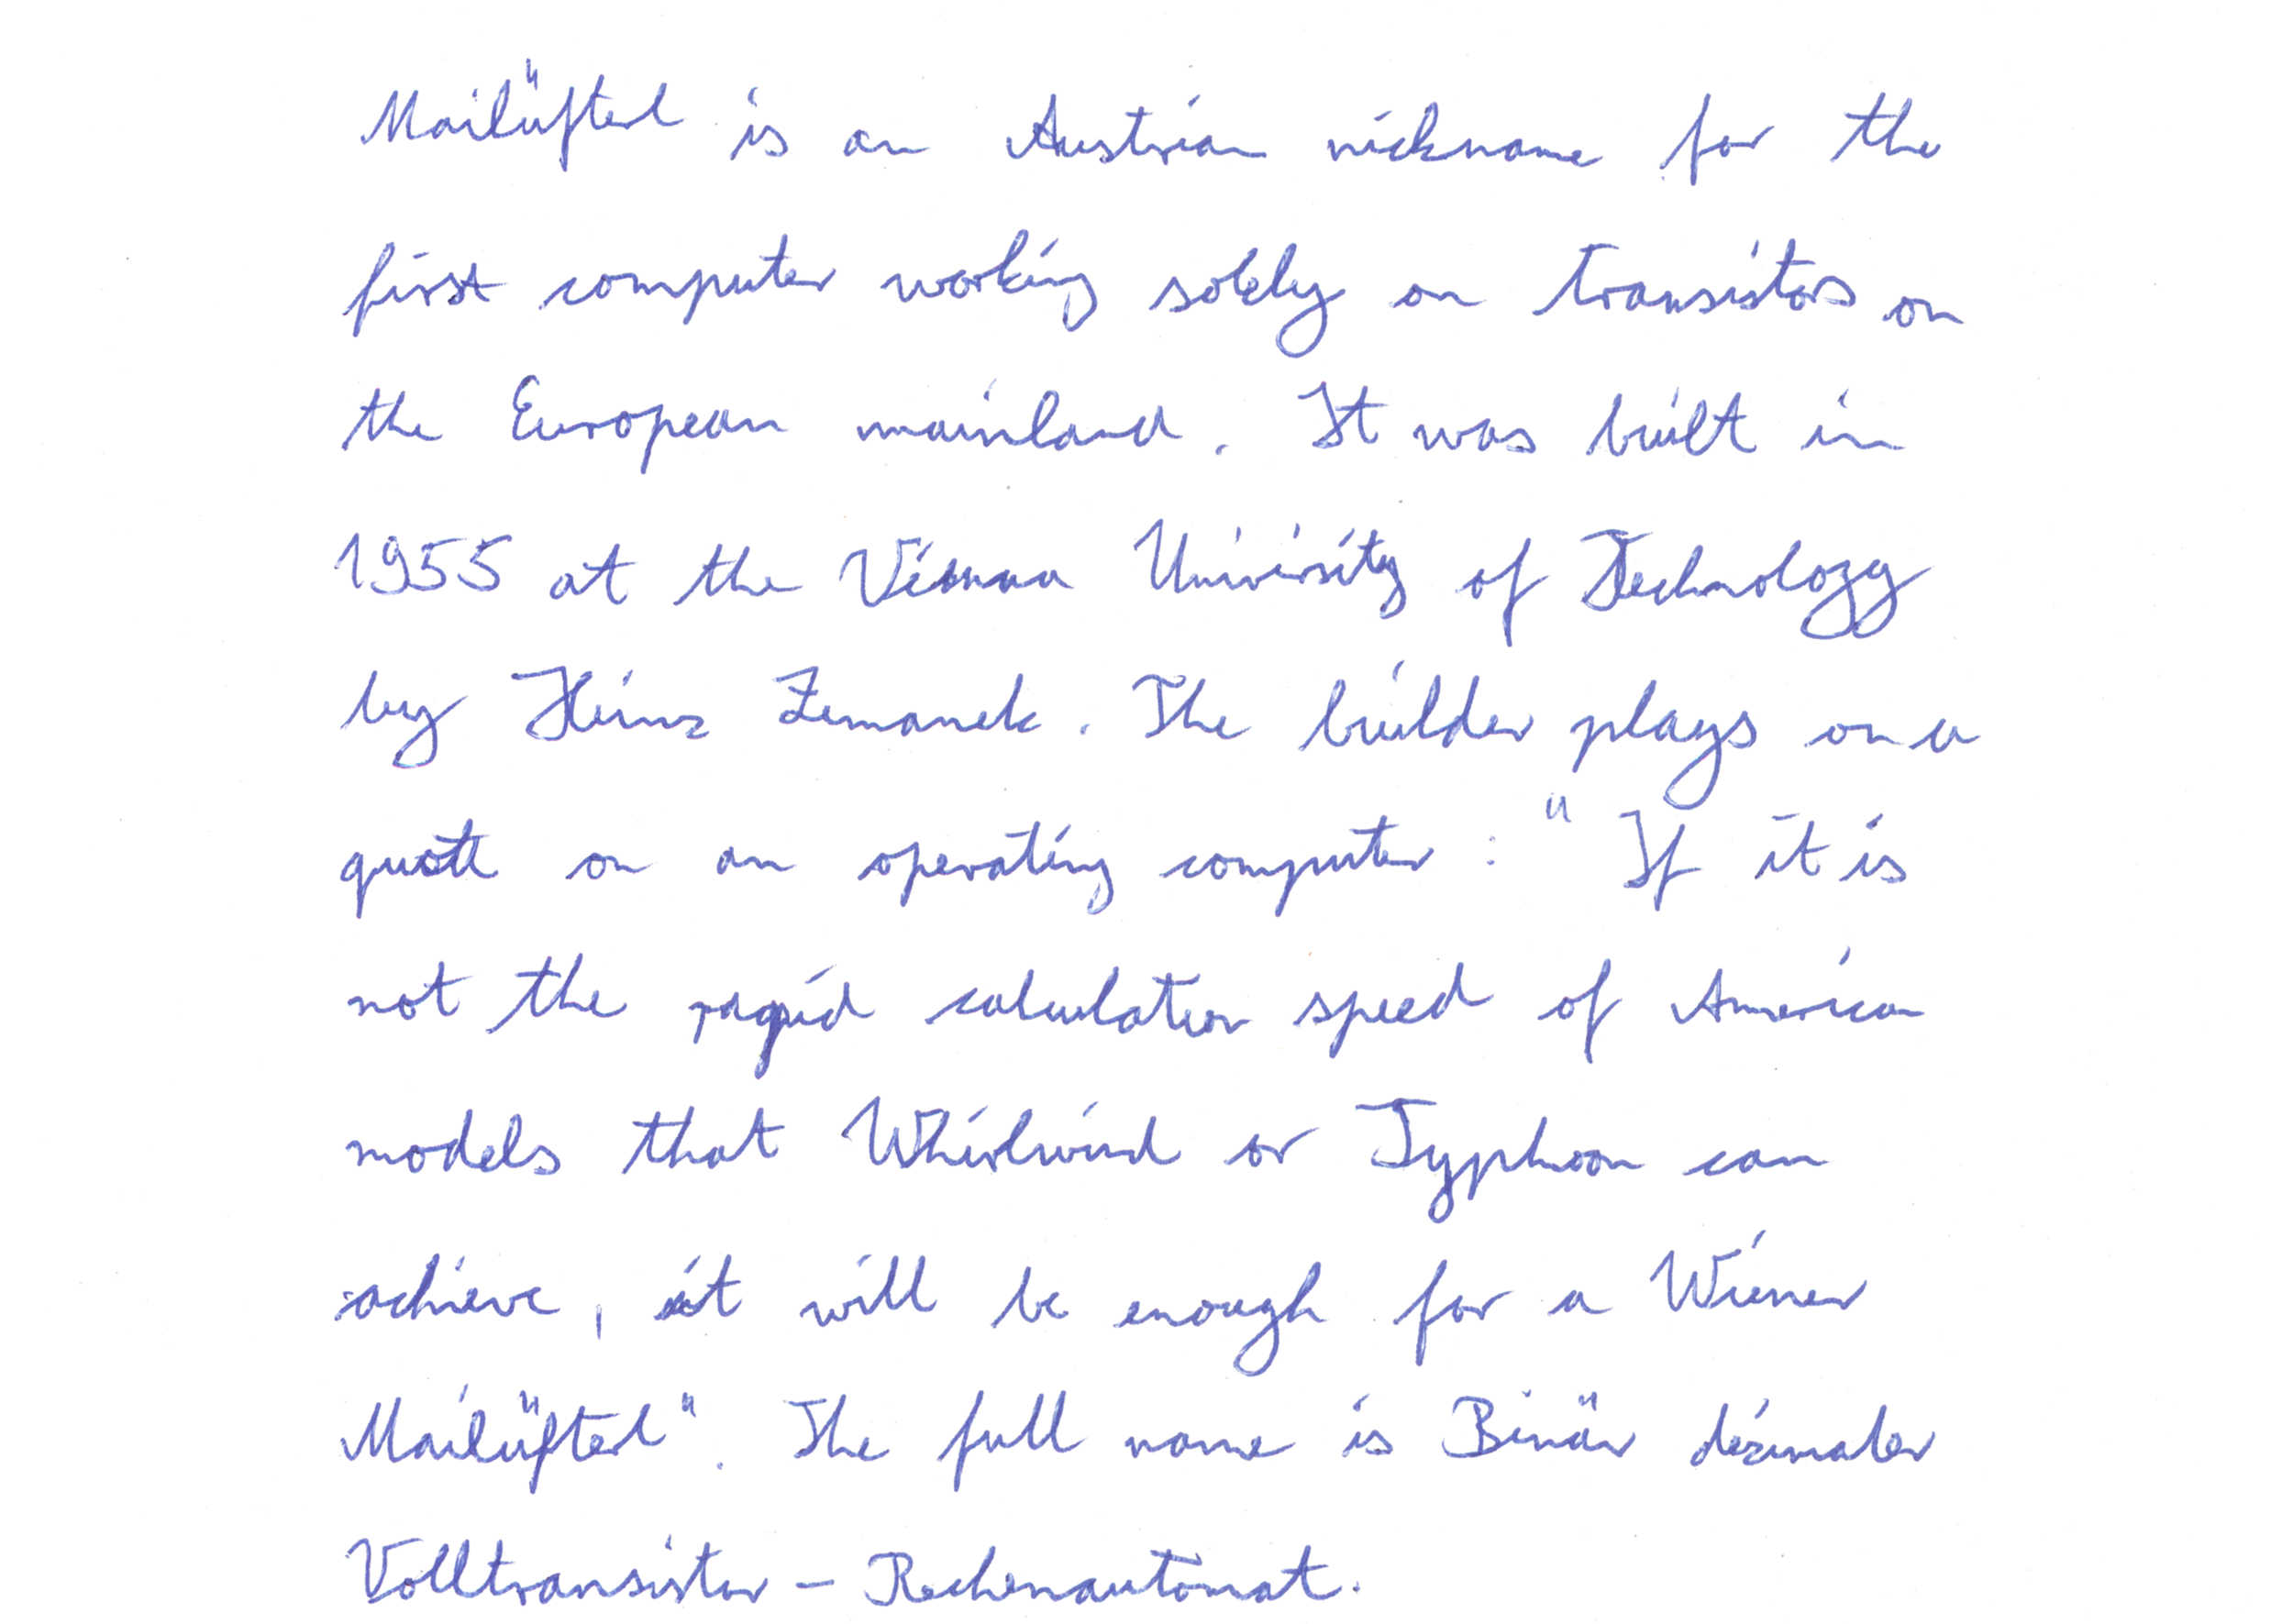 Mailüfterl is an Austrian nickname for the
first computer working solely on transistors on
the European mainland. It was built in
1955 at the Vienna University of Technology
by Heinz Zemanek. The builder plays on a
quote on an operating computer: " If it is
not the rapid calculation speed of American
models that Whirlwind or Typhoon can
achieve, it will be enough for a Wiener
Mailüfterl". The full name is Binär dezimaler
Volltransistor - Rechenautomat.